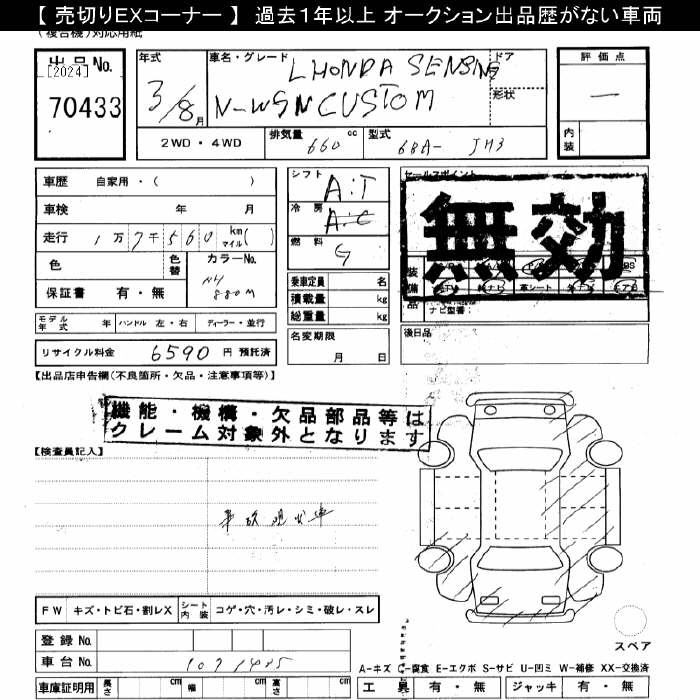 【 売切りEXコーナー 】 過去1年以上 オークション出品歴がない車両
(複合機)対応用紙
出品 No.
[2024]
70433
年式
3/8月
車名・グレード
L HONDA SENSING
N-WGN CUSTOM
ドア
形状
評価点
―
内装
2WD・4WD
排気量 660 cc
型式 6BA- JH3
車歴 自家用・( )
車検 年 月
走行 1万7千560 km マイル( )
色
色替
カラーNo.
NH
880M
保証書 有・無
モデル年式 年 ハンドル 左・右 ディーラー・並行
リサイクル料金 6590 円 預託済
シフト
A:T
冷房
A:C
燃料
G
乗車定員 名
積載量 kg
総重量 kg
名変期限
月 日
セールスポイント
無効
装備品
革シート
ナビ型番:
後日品
【出品店申告欄(不良箇所・欠品・注意事項等)】
機能・機構・欠品部品等は
クレーム対象外となります
【検査員記入】
事故現状車
FW キズ・トビ石・割レX シート内装 コゲ・穴・汚レ・シミ・破レ・スレ
登録 No.
車台 No.
車庫証明用 長さ cm 幅 cm 高さ cm
スペア
A-キズ C-腐食 E-エクボ S-サビ U-凹ミ W-補修 XX-交換済
工具 有・無 ジャッキ 有・無